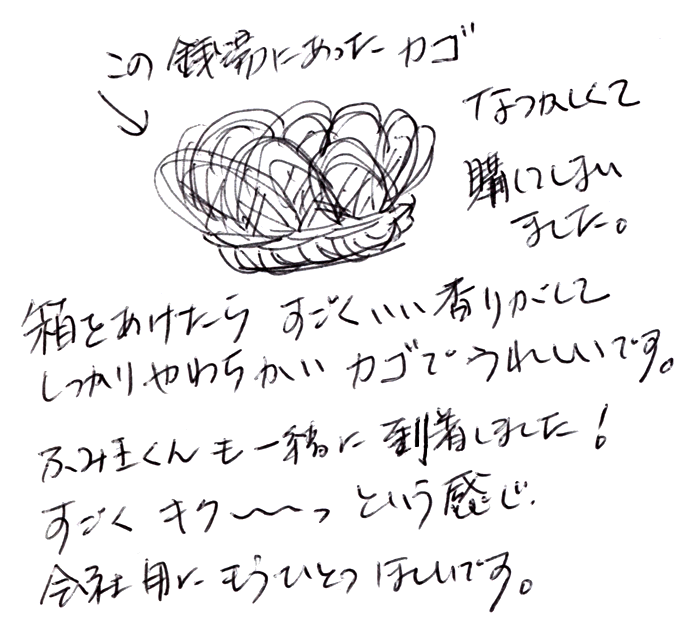 この 銭湯にあった カゴ
なつかしくて
購してしまい
ました。
箱をあけたら すごくいい香りがして
しっかりやわらかい カゴで うれしいです。
ふみ王くんも一緒に到着しました！
すごく キク〜〜っ という感じ.
会社用に もうひとつ ほしいです。